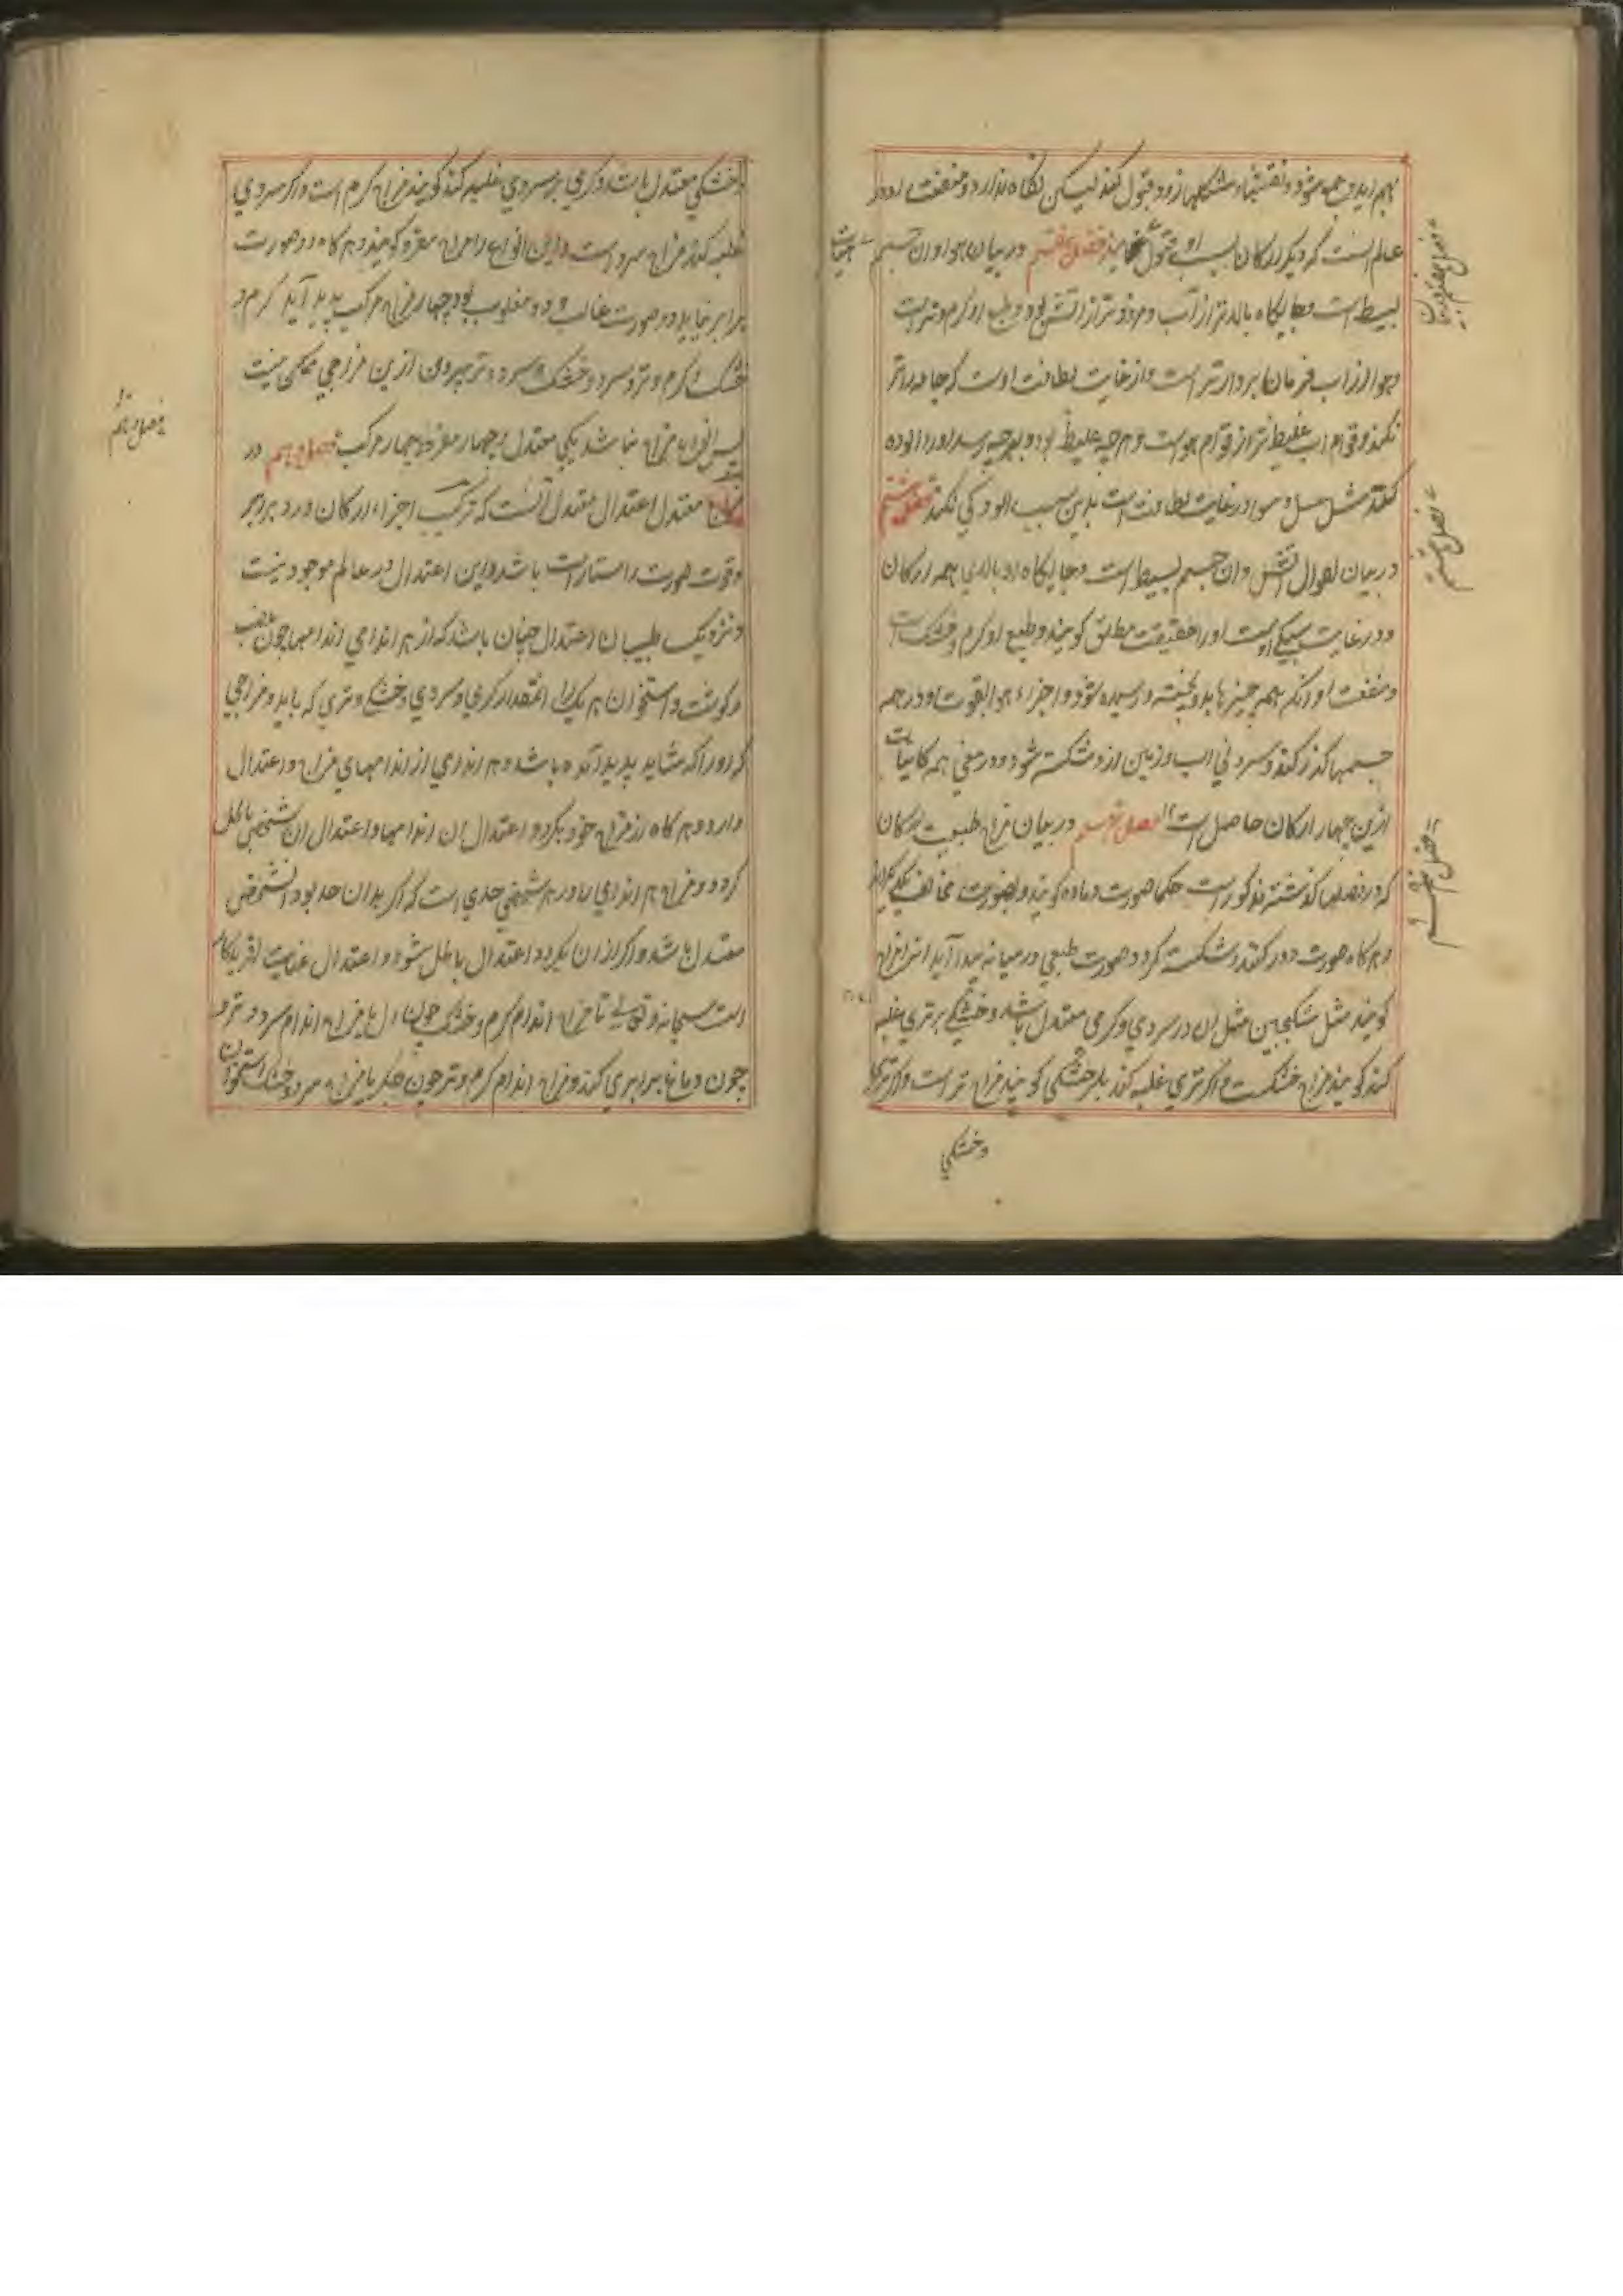 بهم آید و جمع شود و نقشها و شکلها زود قبول کند لیکن نگاه ندارد و منفعت او در
عالم آنست که دیگر ارکان بسبب او قبول نمایند فصل هفتم در بیان هوا و ان جسم
بسیط است و جایگاه بالاتر از آب و فروتر از آتش بود و طبع او گرم و تر است
و هوا از آب فرمان بردارتر است و از غایت لطافت اوست که جامه را تر
نکند و قوام آب غلیظ تر از قوام هواست و هر چه غلیظ بود و بهر چه رسد او را آلوده
کند مثل عسل و هوا در غایت لطافت است بدین سبب آلودگی نکند فصل هشتم
در بیان احوال آتش و ان جسم بسیط است و جایگاه او بالای همه ارکان
و در غایت سبکی است او را خفیف مطلق گویند و طبع او گرم و خشک است
و منفعت او آنکه همه چیزها بدو پخته و رسیده شود و اجزاء هوا بقوت او در همه
جسمها گذر کند و سردی آب و زمین ازو شکسته شود و در معنی همه کاینات
ازین چهار ارکان حاصل است فصل نهم در بیان مزاج طبیعت ارکان
که در فصلها گذشته مذکور است حکما صورت و ماده گویند و بصورت مخالف یکدیگراند
و هر گاه صورت دور کنند و شکسته گردد صورت طبعی در میانه پیدا آید انرا مزاج
گویند مثل سکنجبین مثل ان در سردی و گرمی معتدل باشد و خشکی بر تری غلبه
کند گویند مزاج خشکست و اگر تری غلبه کند بر خشکی گویند مزاج تر است و اگر تری
و خشکی
فصل هفتم در بیان
فصل هشتم
فصل نهم
و خشکی معتدل باشد و گرمی بر سردی غلبه کند گویند مزاج گرم است و اگر سردی
غلبه کند مزاج سرد است و این انواع را مزاج مفرد گویند و هر گاه دو صورت
برابر نیاید دو صورت غالب و دو مغلوب بود چهار مزاج مرکب پدید آید گرم و
خشک و گرم و تر و سرد و خشک و سرد و تر بیرون ازین مزاجی ممکن نیست
پس انواع مزاج نه باشد یکی معتدل و چهار مفرد و چهار مرکب فصل دهم در
مزاج معتدل اعتدال معتدل آنست که ترکیب اجزاء ارکان درو برابر
و قوت صورت راستاراست باشد و این اعتدال در عالم موجود نیست
و نزدیک طبیبان اعتدال چنان باشد که از هر اندامی اندامها چون عصب
و گوشت و استخوان هر یک را آنمقدار گرمی و سردی و خشکی و تری که باید و مزاجی
که او را که شاید پدید آمده باشد و هر اندامی از اندامهای مزاج و اعتدال
دارد و هر گاه از مزاج خود بگردد اعتدال ان اندامها و اعتدال ان شخص باطل
گردد و مزاج هر اندامی را و هر شخصی حدی است که اگر بدان حد بود آنشخص
معتدل باشد و اگر از ان بگردد اعتدال باطل شود و اعتدال عنایت آفریدگار
است سبحانه و تعالی تا مزاج اندام گرم و خشک چون دل با مزاج اندام سرد و تر
چون دماغ برابری کند و مزاج اندام گرم و تر چون جگر با مزاج سرد و خشک استخوان
فصل دهم